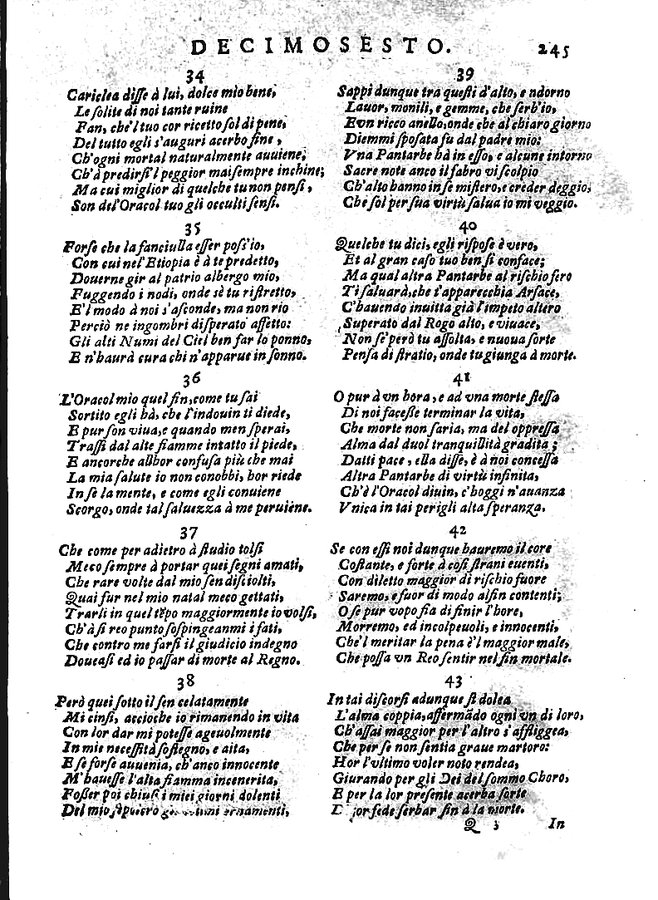 DECIMOSESTO. 245
34
Cariclea disse à lui, dolce mio bene,
Le solite di noi tante ruine
Fan, che'l tuo cor ricetto sol di pene,
Del tutto egli s'auguri acerbo fine,
Ch'ogni mortal naturalmente auuiene;
Ch'à predirsi'l peggior mai sempre inchine;
Ma cui miglior di quel che tu non pensi,
Son del'Oracol tuo gli occulti sensi.
35
Forse che la fanciulla esser poss'io,
Con cui nel'Etiopia è à te predetto,
Douerne gir al patrio albergo mio,
Fuggendo i nodi, onde sè tu ristretto,
E'l modo à noi s'asconde, ma non rio
Perciò ne ingombri disperato affetto:
Gli alti Numi del Ciel ben far lo ponno,
E n'haurà cura chi n'apparue in sonno.
36
L'Oracol mio quel fin, come tu sai
Sortito egli hà, che l'indouin ti diede,
E pur son viua, e quando men sperai,
Trassi dal alte fiamme intatto il piede,
E ancorche allhor confusa più che mai
La mia salute io non conobbi, hor riede
In se la mente, e come egli conuiene
Scorgo, onde tal saluezza à me peruiene.
37
Che come per adietro à studio tolsi
Meco sempre à portar quei segni amati,
Che rare volte dal mio sen disciolti,
Quai fur nel mio natal meco gettati,
Trarli in quel tẽpo maggiormente io volsi,
Ch'à sì reo punto sospingeanmi i fati,
Che contro me farsi il giudicio indegno
Doueasi ed io passar di morte al Regno.
38
Però quei sotto il sen celatamente
Mi cinsi, accioche io rimanendo in vita
Con lor dar mi potesse ageuolmente
In mie necessità sostegno, e aita,
E se forse auuenia, ch'anco innocente
M'hauesse l'alta fiamma incenerita,
Fosser poi chiusi i miei giorni dolenti
Del mio sepulcro gli vltimi ornamenti,
39
Sappi dunque tra questi d'alto, e ndorno
Lauor, monili, e gemme, che serb'io,
E vn ricco anello, onde che al chiaro giorno
Diemmi sposata fu dal padre mio:
Vna Pantarbe hà in esso, e alcune intorno
Sacre note anco il fabro vi scolpio
Ch'alto hanno in se mistero, e creder deggio,
Che sol per sua virtù salua io mi veggio.
40
Quelche tu dici, egli rispose è vero,
Et al gran caso tuo ben si conface;
Ma qual altra Pantarbe al rischio fero
Ti saluarà, che t'apparecchia Arsace,
C'hauendo inuitta già l'impeto altero
Superato dal Rogo alto, e viuace,
Non se' però tu assolta, e nuoua sorte
Pensa di stratio, onde tu giunga à morte.
41
O pur à vn hora, e ad vna morte stessa
Di noi facesse terminar la vita,
Che morte non saria, ma del oppressa
Alma dal duol tranquillità gradita;
Datti pace, ella disse, è à noi concessa
Altra Pantarbe di virtù infinita,
Ch'è l'Oracol diuin, c'hoggi n'auanza
Vnica in tai perigli alta speranza.
42
Se con essi noi dunque hauremo il core
Costante, e forte à così strani euenti,
Con diletto maggior di rischio fuore
Saremo, e fuor di modo alfin contenti;
O se pur vopo fia di finir l'hore,
Morremo, ed incolpeuoli, e innocenti,
Che'l meritar la pena è'l maggior male,
Che possa vn Reo sentir nel fin mortale.
43
In tai discorsi adunque si dolea
L'alma coppia, affermãdo ogni vn di loro,
Ch'assai maggior per l'altro s'affliggea,
Che per se non sentia graue martoro:
Hor l'vltimo voler noto rendea,
Giurando per gli Dei del sommo Choro,
E per la lor presente acerba sorte
lor fede serbar fin à la morte.
Q 3 In